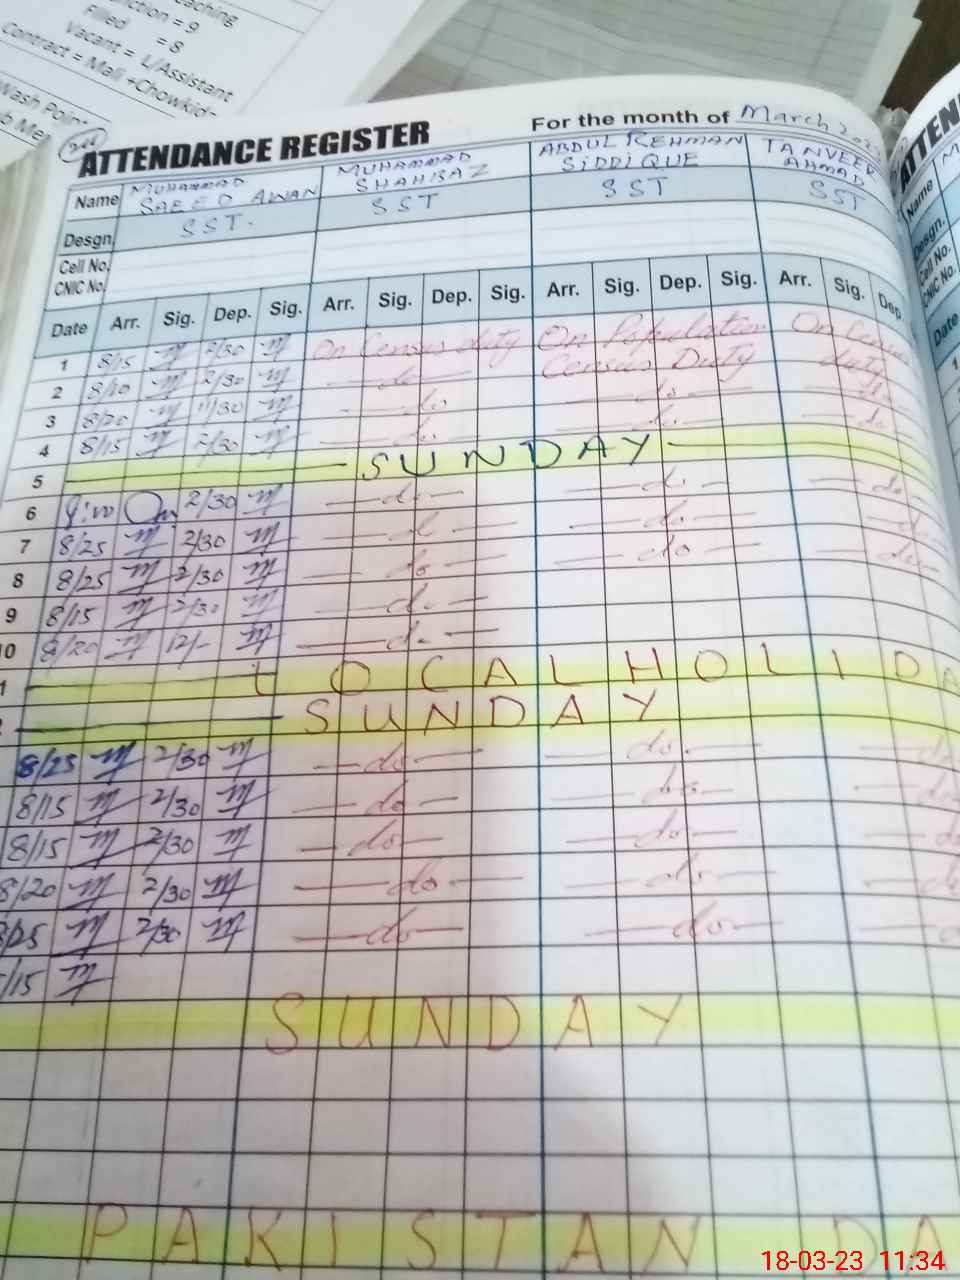 aching
nction = 9
Filled = 8
Vacant = L/Assistant
Contract = Mali +Chowkid
Wash Poin
ATTENDANCE REGISTER
For the month of March
Name MUHAMMAD SAEED AWAN MUHAMMAD SHAHBAZ ABDUL REHMAN SIDDIQUE TANVEER AHMAD
Desgn. SST. SST SST SST
Cell No.
CNIC No.
Date Arr. Sig. Dep. Sig. Arr. Sig. Dep. Sig. Arr. Sig. Dep. Sig. Arr. Sig. Dep.
1 8/15 2/30 On Census duty On Population Census Duty On Census duty
2 8/10 2/30 do do do
3 8/20 11/30 do do do
4 8/15 2/30 do
5 SUNDAY
6 2/30 do do do
7 8/25 2/30 do do do
8 8/25 2/30 do do do
9 8/15 2/30 do
10 8/20 12/- do
LOCAL HOLIDA
SUNDAY
8/25 2/30 do do do
8/15 2/30 do do do
8/15 2/30 do do do
8/20 2/30 do do do
8/25 2/30 do do do
/15
SUNDAY
PAKISTAN DA
18-03-23 11:34
ATTEN
Name
Desgn.
Cell No.
CNIC No.
Date
1